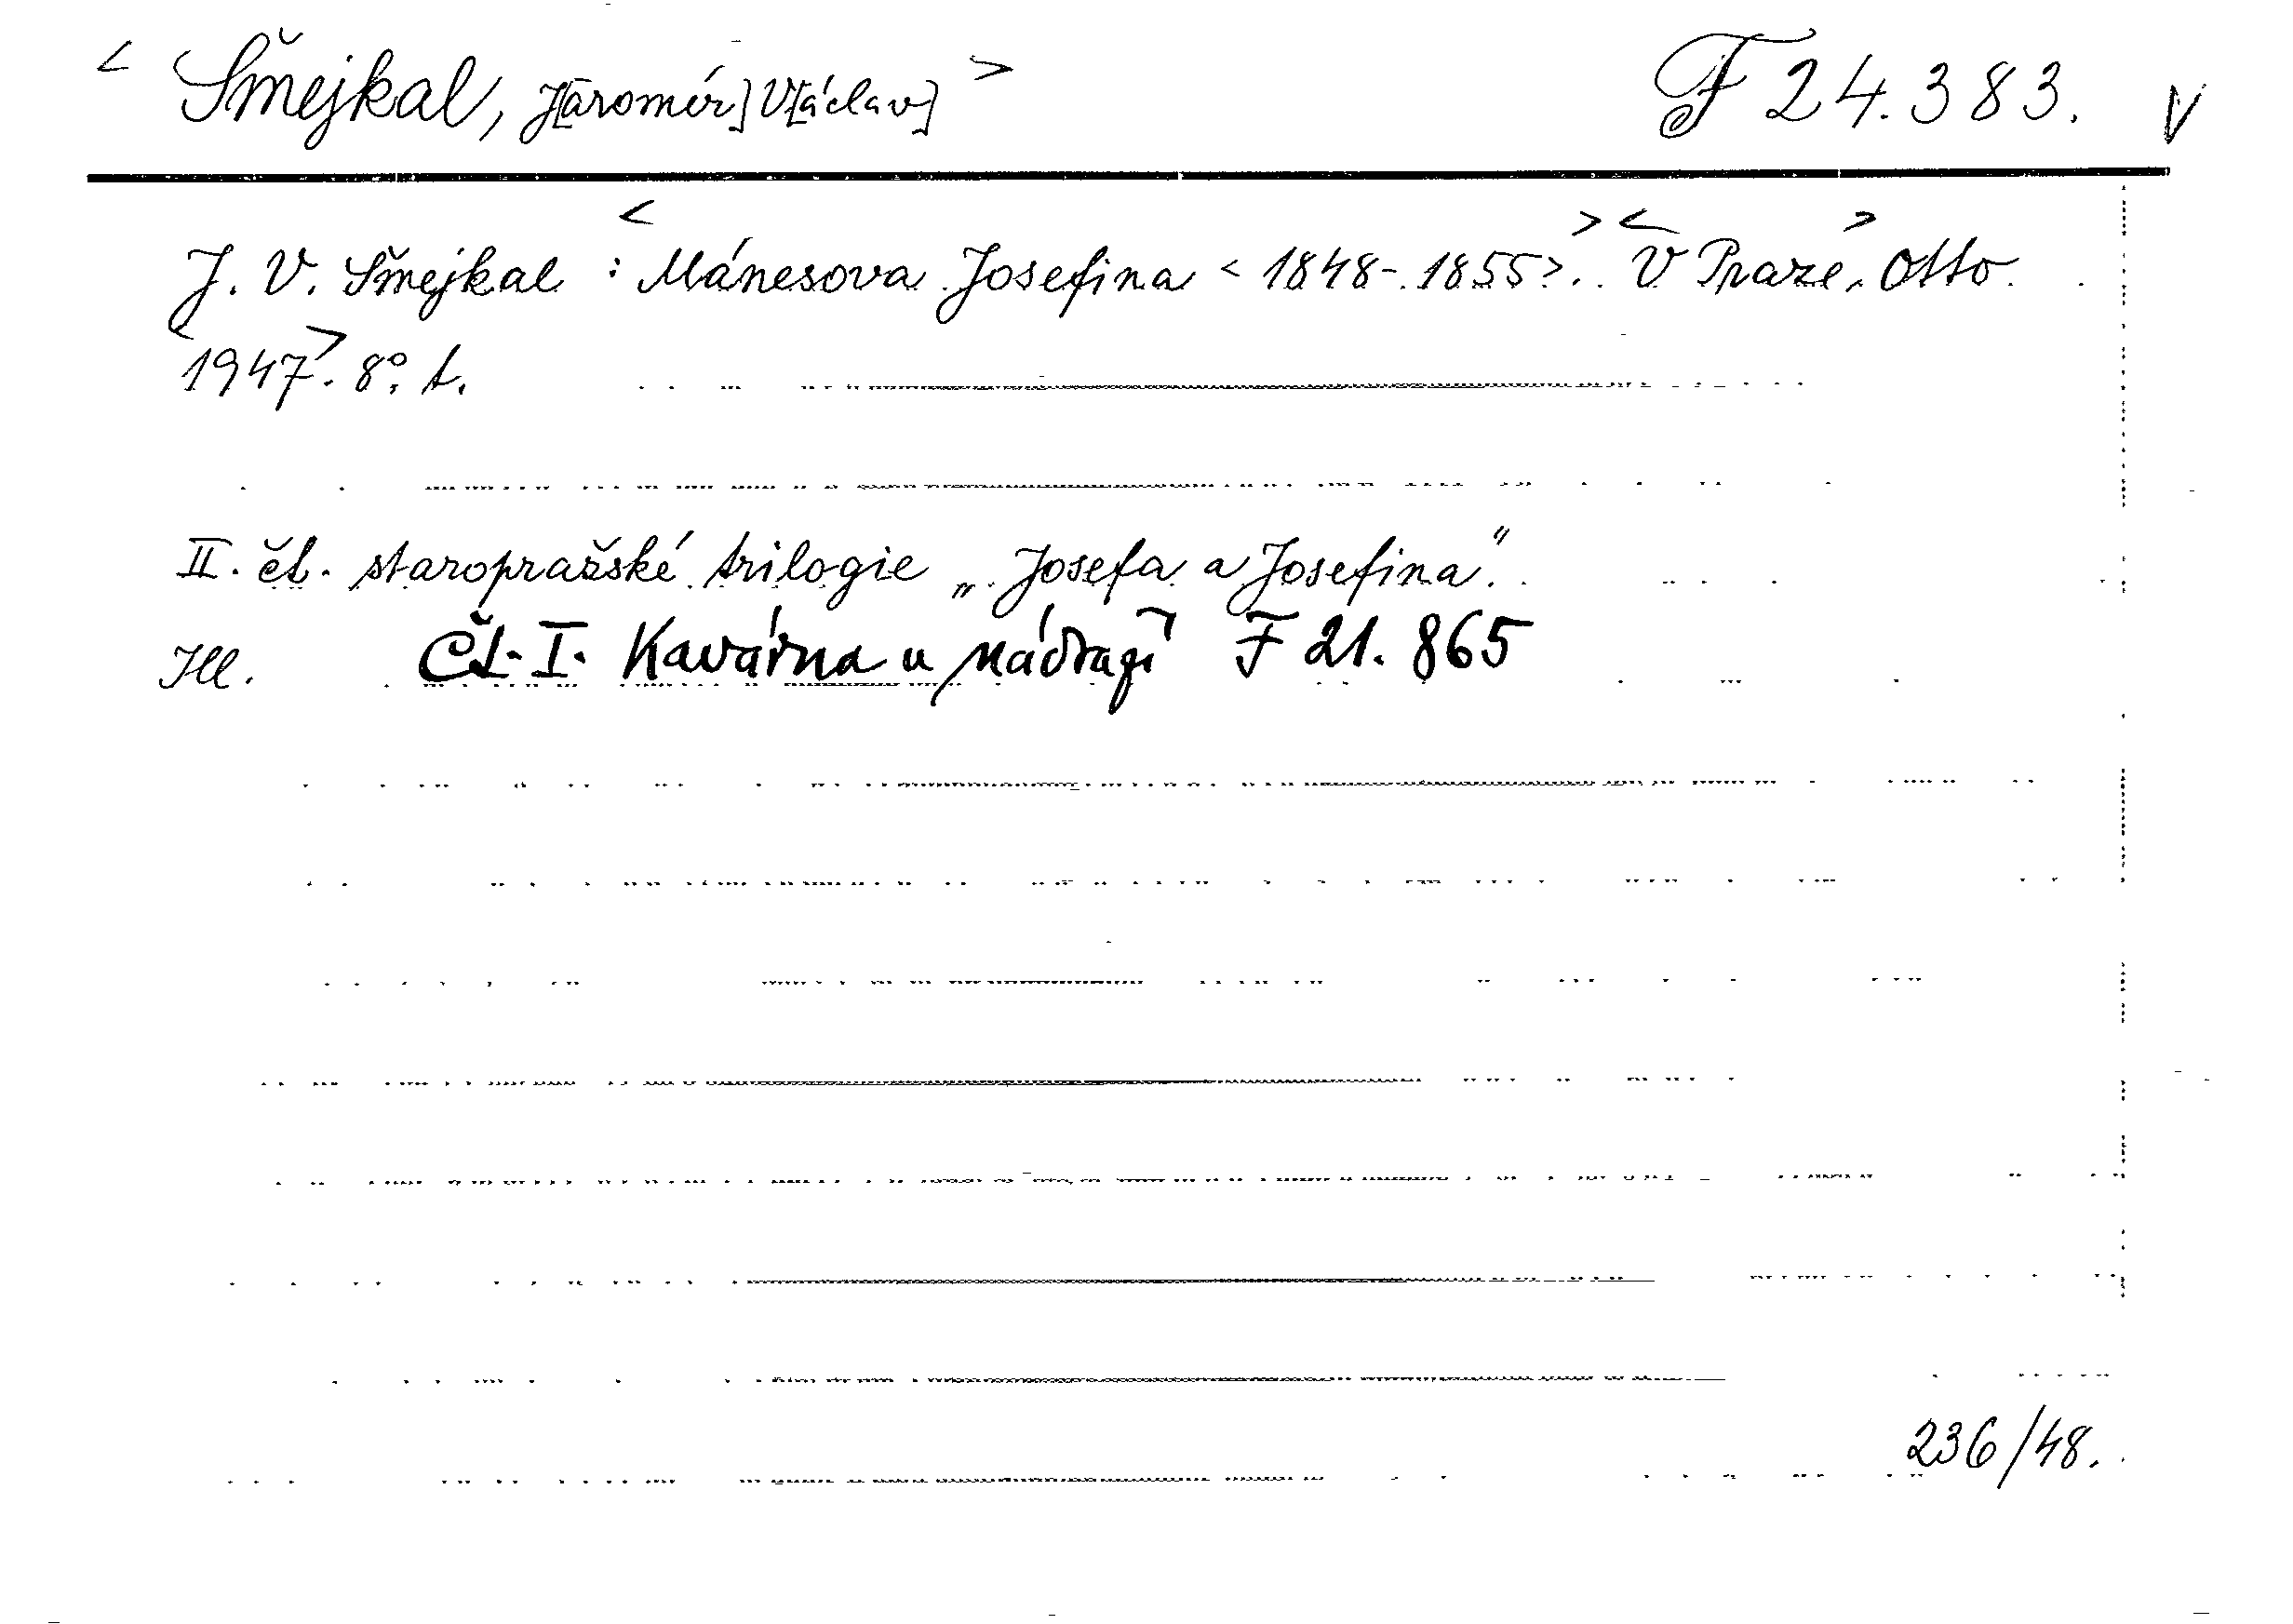 < Šmejkal, J[aromír] V[áclav] > F 24.383. V
J. V. Šmejkal : <Mánesova Josefina < 1848-1855>.> <V Praze,> Otto.
<1947>. 8°. t.
II. čt. staropražské trilogie „Josefa a Josefina“.
Ill. Čt. I. Kavárna u nádraží F 21. 865
236/48.